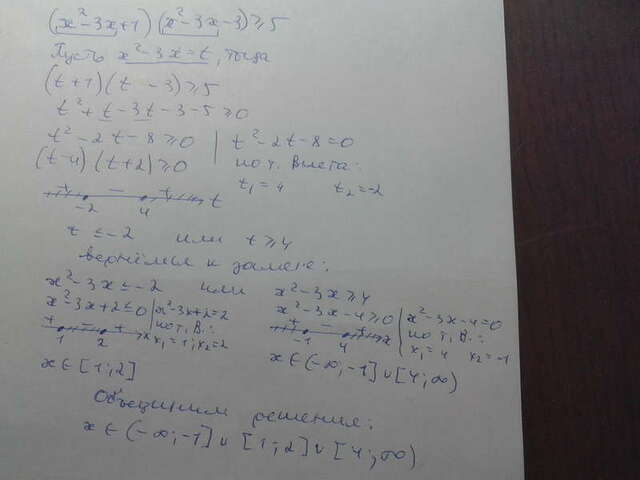 (x²-3x+1)(x²-3x-3)≥5
Пусть x²-3x=t, тогда
(t+1)(t-3)≥5
t²+t-3t-3-5≥0
t²-2t-8≥0 | t²-2t-8=0
(t-4)(t+2)≥0 | по т. Виета:
t₁=4 t₂=-2
+ - + t
-2 4
t≤-2 или t≥4
вернёмся к замене:
x²-3x≤-2 или x²-3x≥4
x²-3x+2≤0 | x²-3x+2=2 x²-3x-4≥0 | x²-3x-4=0
+ - + x | по т. В.: + - + x | по т. В.:
1 2 | x₁=1; x₂=2 -1 4 | x₁=4 x₂=-1
x∈[1;2] x∈(-∞;-1]∪[4;∞)
Объединим решения:
x∈(-∞;-1]∪[1;2]∪[4;∞)